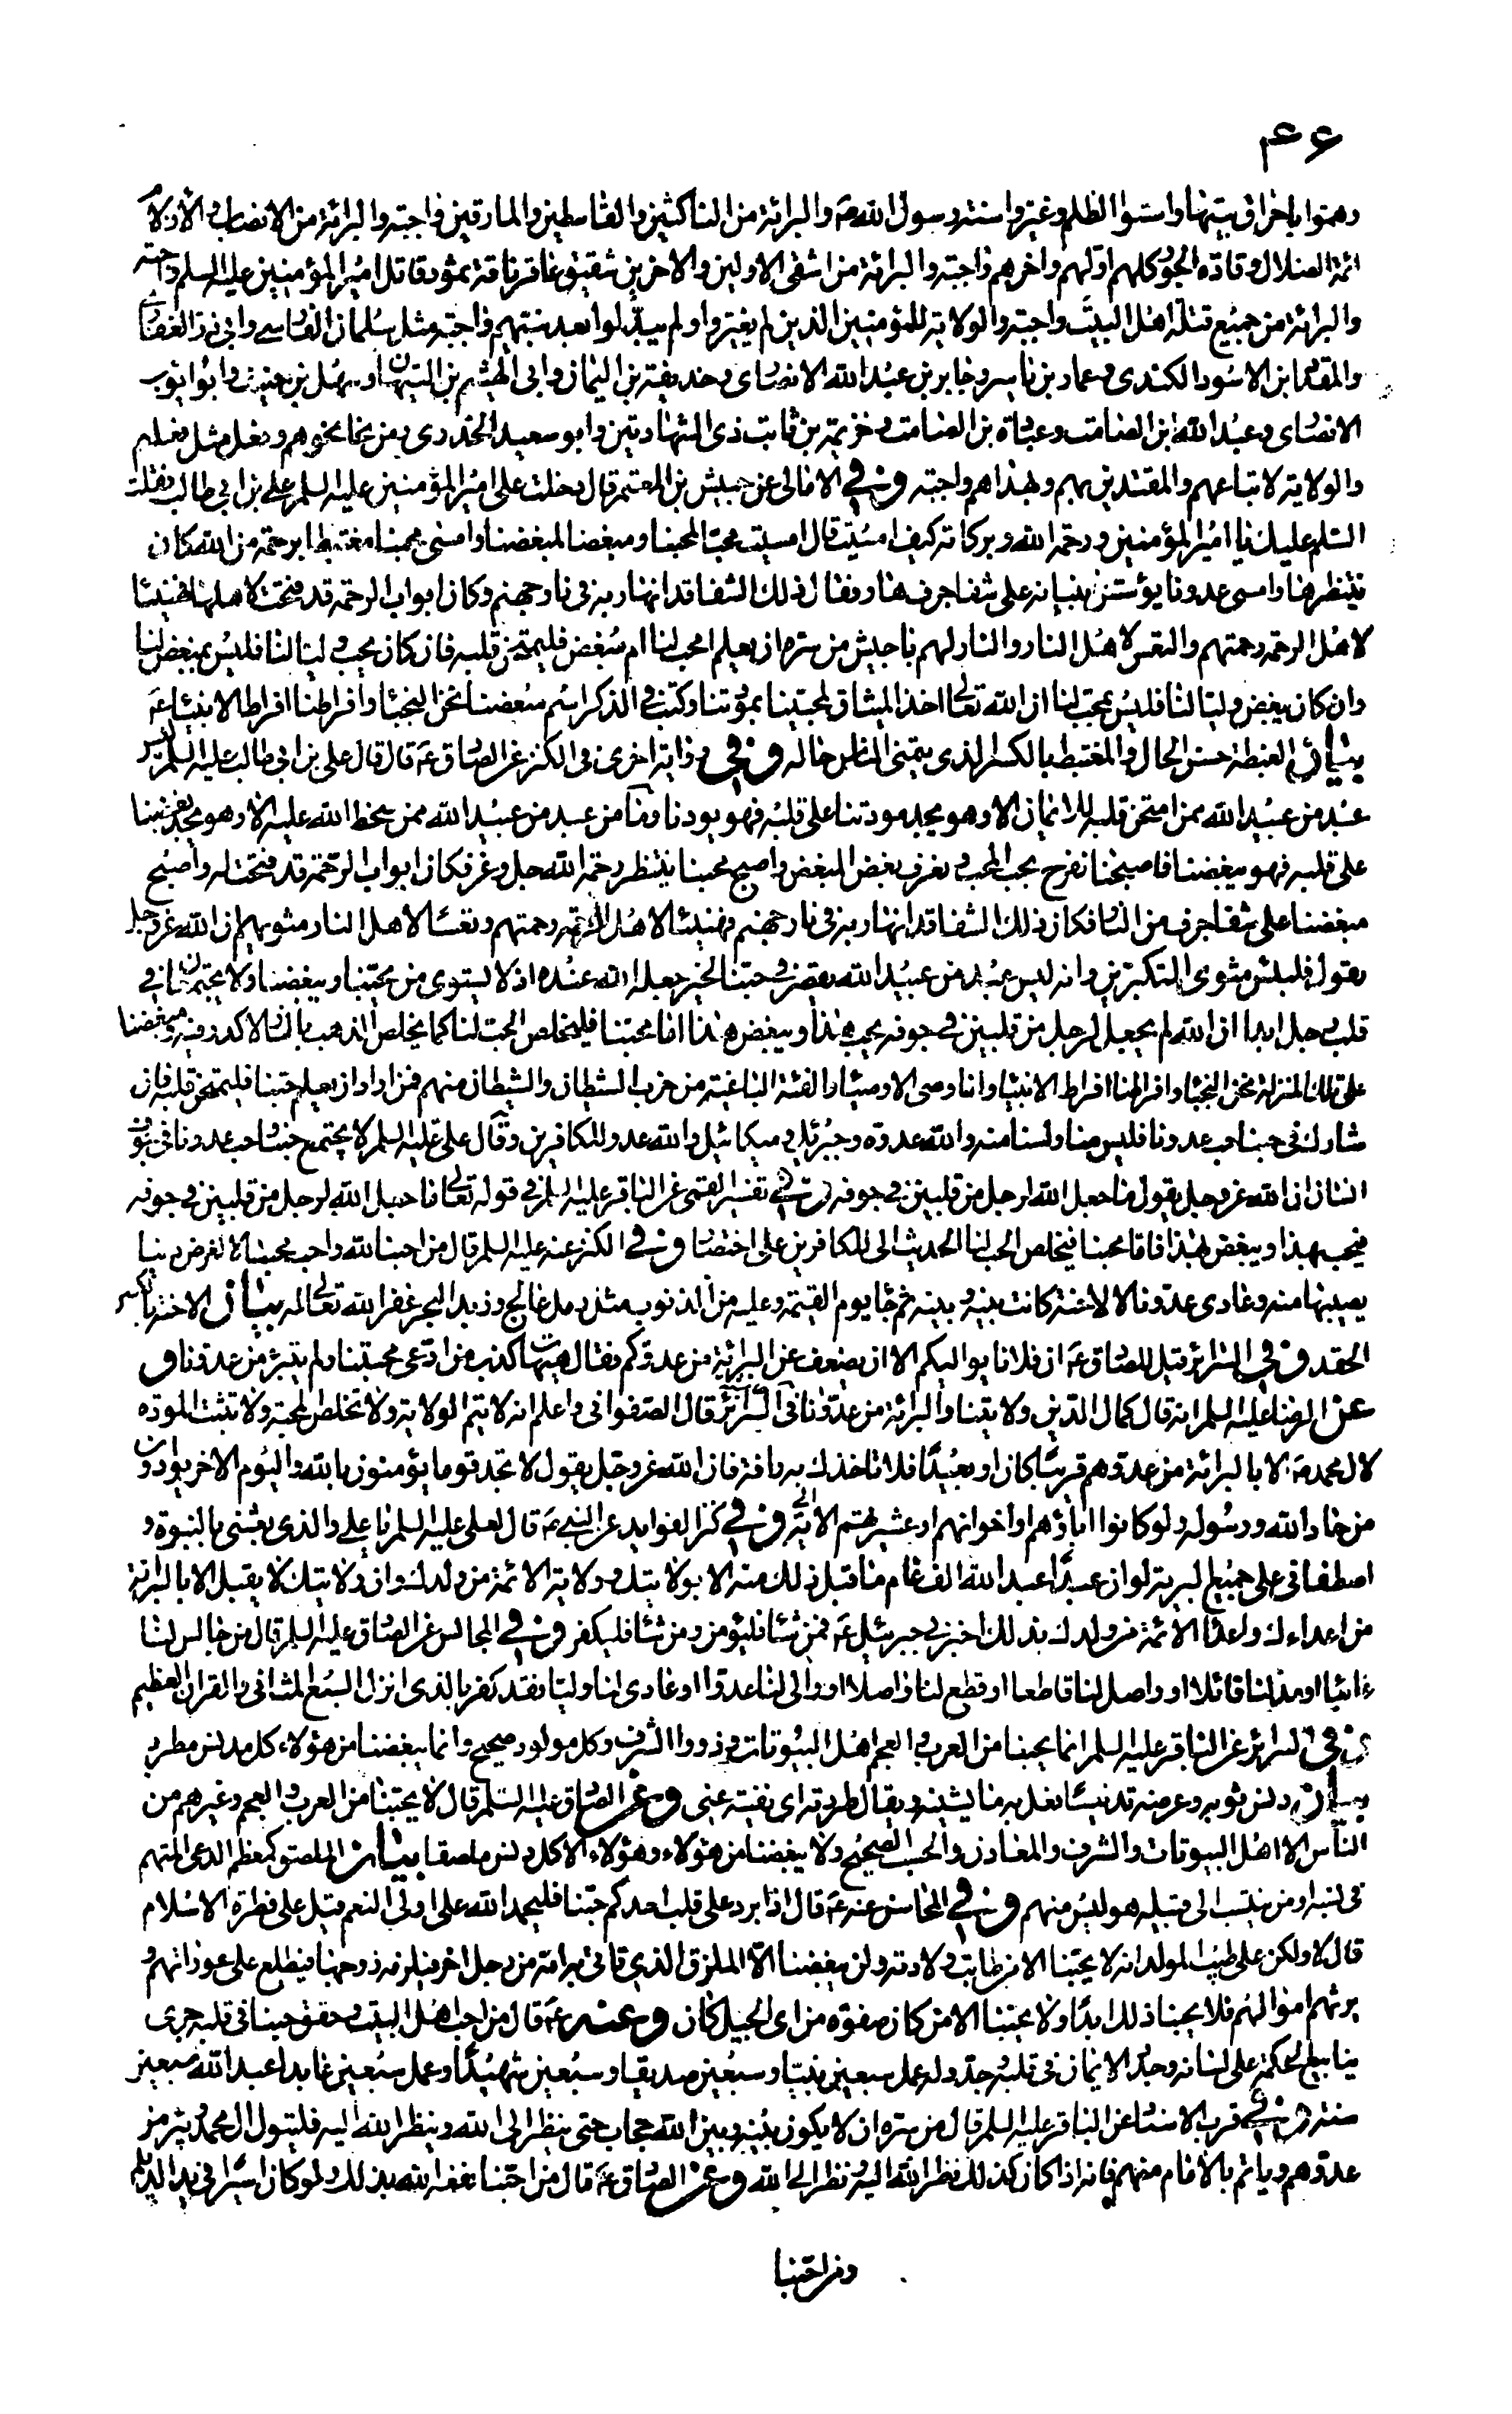 ۴۶
وهموا باحراق بيتها واسسوا الظلم وغيروا سنة رسول الله ص والبرائة من الناكثين والقاسطين والمارقين واجبة والبرائة من الانصاب والازلام
ائمة الضلال وقادة الجور كلهم اولهم واخرهم واجبة والبرائة من اشقى الاولين والاخرين شقيق عاقر ناقة ثمود قاتل امير المؤمنين عليه السلم واجبة
والبرائة من جميع قتلة اهل البيت واجبة والولاية للمؤمنين الذين لم يغيروا ولم يبدلوا بعد نبيهم واجبة مثل سلمان الفارسي وابي ذر الغفاري
والمقداد ابن الاسود الكندي وعمار بن ياسر وجابر بن عبد الله الانصاري وحذيفة بن اليمان وابي الهيثم بن التيهان وسهل بن حنيف وابو ايوب
الانصاري وعبد الله ابن الصامت وعبادة بن الصامت وخزيمة بن ثابت ذي الشهادتين وابو سعيد الخدري ومن نحا نحوهم وفعل مثل فعلهم
والولاية لاتباعهم والمقتدين بهم وبهداهم واجبة وفي الامالي عن حبيش بن المعتمر قال دخلت على امير المؤمنين عليه السلم علي بن ابي طالب فقلت
السلم عليك يا امير المؤمنين ورحمة الله وبركاته كيف امسيت قال امسيت محبا لمحبنا ومبغضا لمبغضنا وامسى محبنا مغتبطا برحمة من الله كان
ينتظرها وامسى عدونا يؤسس بنيانه على شفا جرف هار وفكان ذلك الشفا قد انهار به في نار جهنم وكان ابواب الرحمة قد فتحت لاهلها فهنيئا
لاهل الرحمة رحمتهم والتعس لاهل النار والنار لهم يا حبيش من سره ان يعلم امحب لنا ام مبغض فليمتحن قلبه فان كان يحب وليا لنا فليس بمبغض لنا
وان كان يبغض وليا لنا فليس بمحب لنا ان الله تعالى اخذ الميثاق لمحبينا بمودتنا وكتب في الذكر اسم مبغضنا نحن النجباء وافراطنا افراط الانبياء ع
بيان الغبطة حسن الحال والمغتبط بالكسر الذي يتمنى الناس حاله وفي رواية اخرى في الكنز عن الصادق ع قال قال علي بن ابي طالب عليه السلم ليس
عبد من عبيد الله ممن امتحن قلبه للايمان الا وهو يجد مودتنا على قلبه فهو يودنا وما من عبد من عبيد الله ممن سخط الله عليه الا وهو يجد بغضنا
على قلبه فهو يبغضنا فاصبحنا نفرح بحب المحب ونعرف بغض المبغض واصبح محبنا ينتظر رحمة الله جل وعز فكان ابواب الرحمة قد فتحت له واصبح
مبغضنا على شفا جرف من النار فكان ذلك الشفا قد انهار به في نار جهنم فهنيئا لاهل الرحمة رحمتهم وتعسا لاهل النار مثويهم ان الله عز وجل
يقول فلبئس مثوى المتكبرين وانه ليس عبد من عبيد الله يقصر في حبنا لخير جعله الله عنده اذ لا يستوى من يحبنا ويبغضنا ولا يجتمعان في
قلب رجل ابدا ان الله لم يجعل لرجل من قلبين في جوفه يحب هذا ويبغض هذا اما محبنا فليخلص الحب لنا كما يخلص الذهب بالنار لا كدر فيه ومبغضنا
على تلك المنزلة نحن النجباء وافراطنا افراط الانبياء وانا وصي الاوصياء والفئة الباغية من حزب الشيطان والشيطان منهم فمن اراد ان يعلم حبنا فليمتحن قلبه فان
شارك في حبنا حب عدونا فليس منا ولسنا منه والله عدوه وجبرئيل وميكائيل والله عدو للكافرين وقال علي عليه السلم لا يجتمع حبنا وحب عدونا في جوف
انسان ان الله عز وجل يقول ما جعل الله لرجل من قلبين في جوفه وفي تفسير القمي عن الباقر عليه السلم في قوله تعالى ما جعل الله لرجل من قلبين في جوفه
فيحب بهذا ويبغض بهذا فاما محبنا فيخلص الحب لنا الحديث الى للكافرين على اختصار وفي الكنز عنه عليه السلم قال من احبنا لله واحب محبنا لا لغرض دنيا
يصيبها منه وعادى عدونا لا لاحنة كانت بينه وبينه ثم جاء يوم القيمة وعليه من الذنوب مثل رمل عالج وزبد البحر غفر الله تعالى له بيان الاحنة بالكسر
الحقد وفي السرائر قيل للصادق ع ان فلانا يواليكم الا انه يضعف عن البرائة من عدوكم فقال هيهات كذب من ادعى محبتنا ولم يتبرء من عدونا و
عن الرضا عليه السلم انه قال كمال الدين ولايتنا والبرائة من عدونا في السرائر قال الصفواني واعلم انه لا يتم الولاية ولا تخلص المحبة ولا تثبت المودة
لال محمد ص الا بالبرائة من عدوهم قريبا كان او بعيدا فلا تاخذك به رافة فان الله عز وجل يقول لا تجد قوما يؤمنون بالله واليوم الاخر يوادون
من حاد الله ورسوله ولو كانوا اباؤهم او اخوانهم او عشيرتهم الاية وفي كنز الفوايد عن النبي ص قال لعلي عليه السلم يا علي والذي بعثني بالنبوة و
اصطفاني على جميع البرية لو ان عبدا عبد الله الف عام ما قبل ذلك منه الا بولايتك وولاية الائمة من ولدك وان ولايتك لا يقبل الا بالبرائة
من اعداءك واعداء الائمة من ولدك بذلك اخبرني جبرئيل ع فمن شاء فليؤمن ومن شاء فليكفر وفي المجالس عن الصادق عليه السلم قال من جالس لنا
عائبا او مدح لنا قائلا او واصل لنا قاطعا او قطع لنا واصلا او والى لنا عدوا او عادى لنا وليا فقد كفر بالذي انزل السبع المثاني والقران العظيم
وفي السرائر عن الباقر عليه السلم انما يحبنا من العرب والعجم اهل البيوتات وذووا الشرف وكل مولود صحيح وانما يبغضنا من هؤلاء كل مدنس مطرد
بيان دنس ثوبه وعرضه تدنيسا فعل به ما يشينه ويقال طردته اي نفيته عني وعن الصادق عليه السلم قال لا يحبنا من العرب والعجم وغيرهم من
الناس الا اهل البيوتات والشرف والمعادن والحسب الصحيح ولا يبغضنا من هؤلاء وهؤلاء الا كل دنس ملصق بيان الملصق كمعظم الدعى المتهم
في نسبه ومن ينتسب الى قبيلة هو ليس منهم وفي المحاسن عنه ع قال اذا برد على قلب احدكم حبنا فليحمد الله على اولى النعم قيل على فطرة الاسلام
قال لا ولكن على طيب المولد انه لا يحبنا الا من طابت ولادته ولن يبغضنا الا الملزق الذي تاتي به امه من رجل اخر فيلزمه زوجها فيطلع على عوراتهم و
يرثهم اموالهم فلا يحبنا ذلك ابدا ولا يحبنا الا من كان صفوة من اي الجيل كان وعنه ع قال من احب اهل البيت وحقق حبنا في قلبه جرى
ينابيع الحكمة على لسانه وجدد الايمان في قلبه جدد له عمل سبعين نبيا وسبعين صديقا وسبعين شهيدا وعمل سبعين عابدا عبد الله سبعين
سنة وفي قرب الاسناد عن الباقر عليه السلم قال من سره ان لا يكون بينه وبين الله حجاب حتى ينظر الى الله وينظر الله اليه فليتول ال محمد ويتبرء من
عدوهم وياتم بالامام منهم فانه اذا كان كذلك نظر الله اليه ونظر الى الله وعن الصادق ع قال من احبنا نفعه الله بذلك ولو كان اسيرا في يد الديلم
ومن احبنا